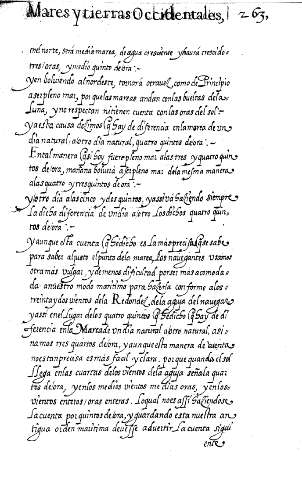 Mares y tierras Occidentales, 263,
ordeste, será media marea, de agua creçiente y haura creçido
tres oras, y medio quinto de ora.
y en bolviendo al nordeste, tornará otra vez, como de Principio
a ser pleno mar, porque las mareas andan con las bueltas dela
Luna, y no respectan ni tienen cuenta con las oras del sol.
y a esta causa dezimos q̃ hay de diferencia en la marea de vn
dia natural, a otro dia natural, quatro quintos de ora.
En tal manera q̃ si hoy fuere pleno mar alas tres y quatro quin
tos de ora, mañana bolvera a ser pleno mar dela mesma manera
alas quatro y tres quintos de ora.
y otro dia alas cinco y dos quintos, y assi va haziendo siempre
la dicha diferencia de vn dia a otro los dichos quatro quin
tos de ora.
y aunque esta cuenta q̃ he dicho es la mas precisa q̃ se sabe
para saber a que es el punto dela marea, Los navegantes vsamos
otra mas vulgar, y de menos dificultad, por ser mas acomoda
da a nuestro modo maritimo para hazerla conforme alos
treinta y dos vientos dela Redondez dela aguja del navegar
y assi en el lugar delos quatro quintos q̃ he dicho q̃ hay de di
ferencia en la Marea de vn dia natural a otro natural, asi
namos tres quartos de ora, y aunque esta manera de cuenta
no es tan precisa es mas facil y clara. porque quando el sol
llega en las quartas delos vientos dela aguja señala quar
tos de ora, y en los medios vientos medias oras, y en los
vientos enteros oras enteras. Lo qual no es assi haziendose
la cuenta por quintos de ora, y guardando esta nuestra an
tigua orden maritima deuesse aduertir La cuenta sigui
ente